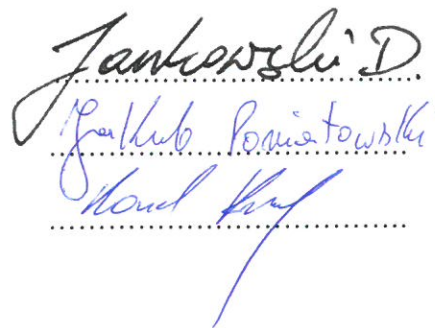 Jankowski D.
Jakub Poniatowski
Karol